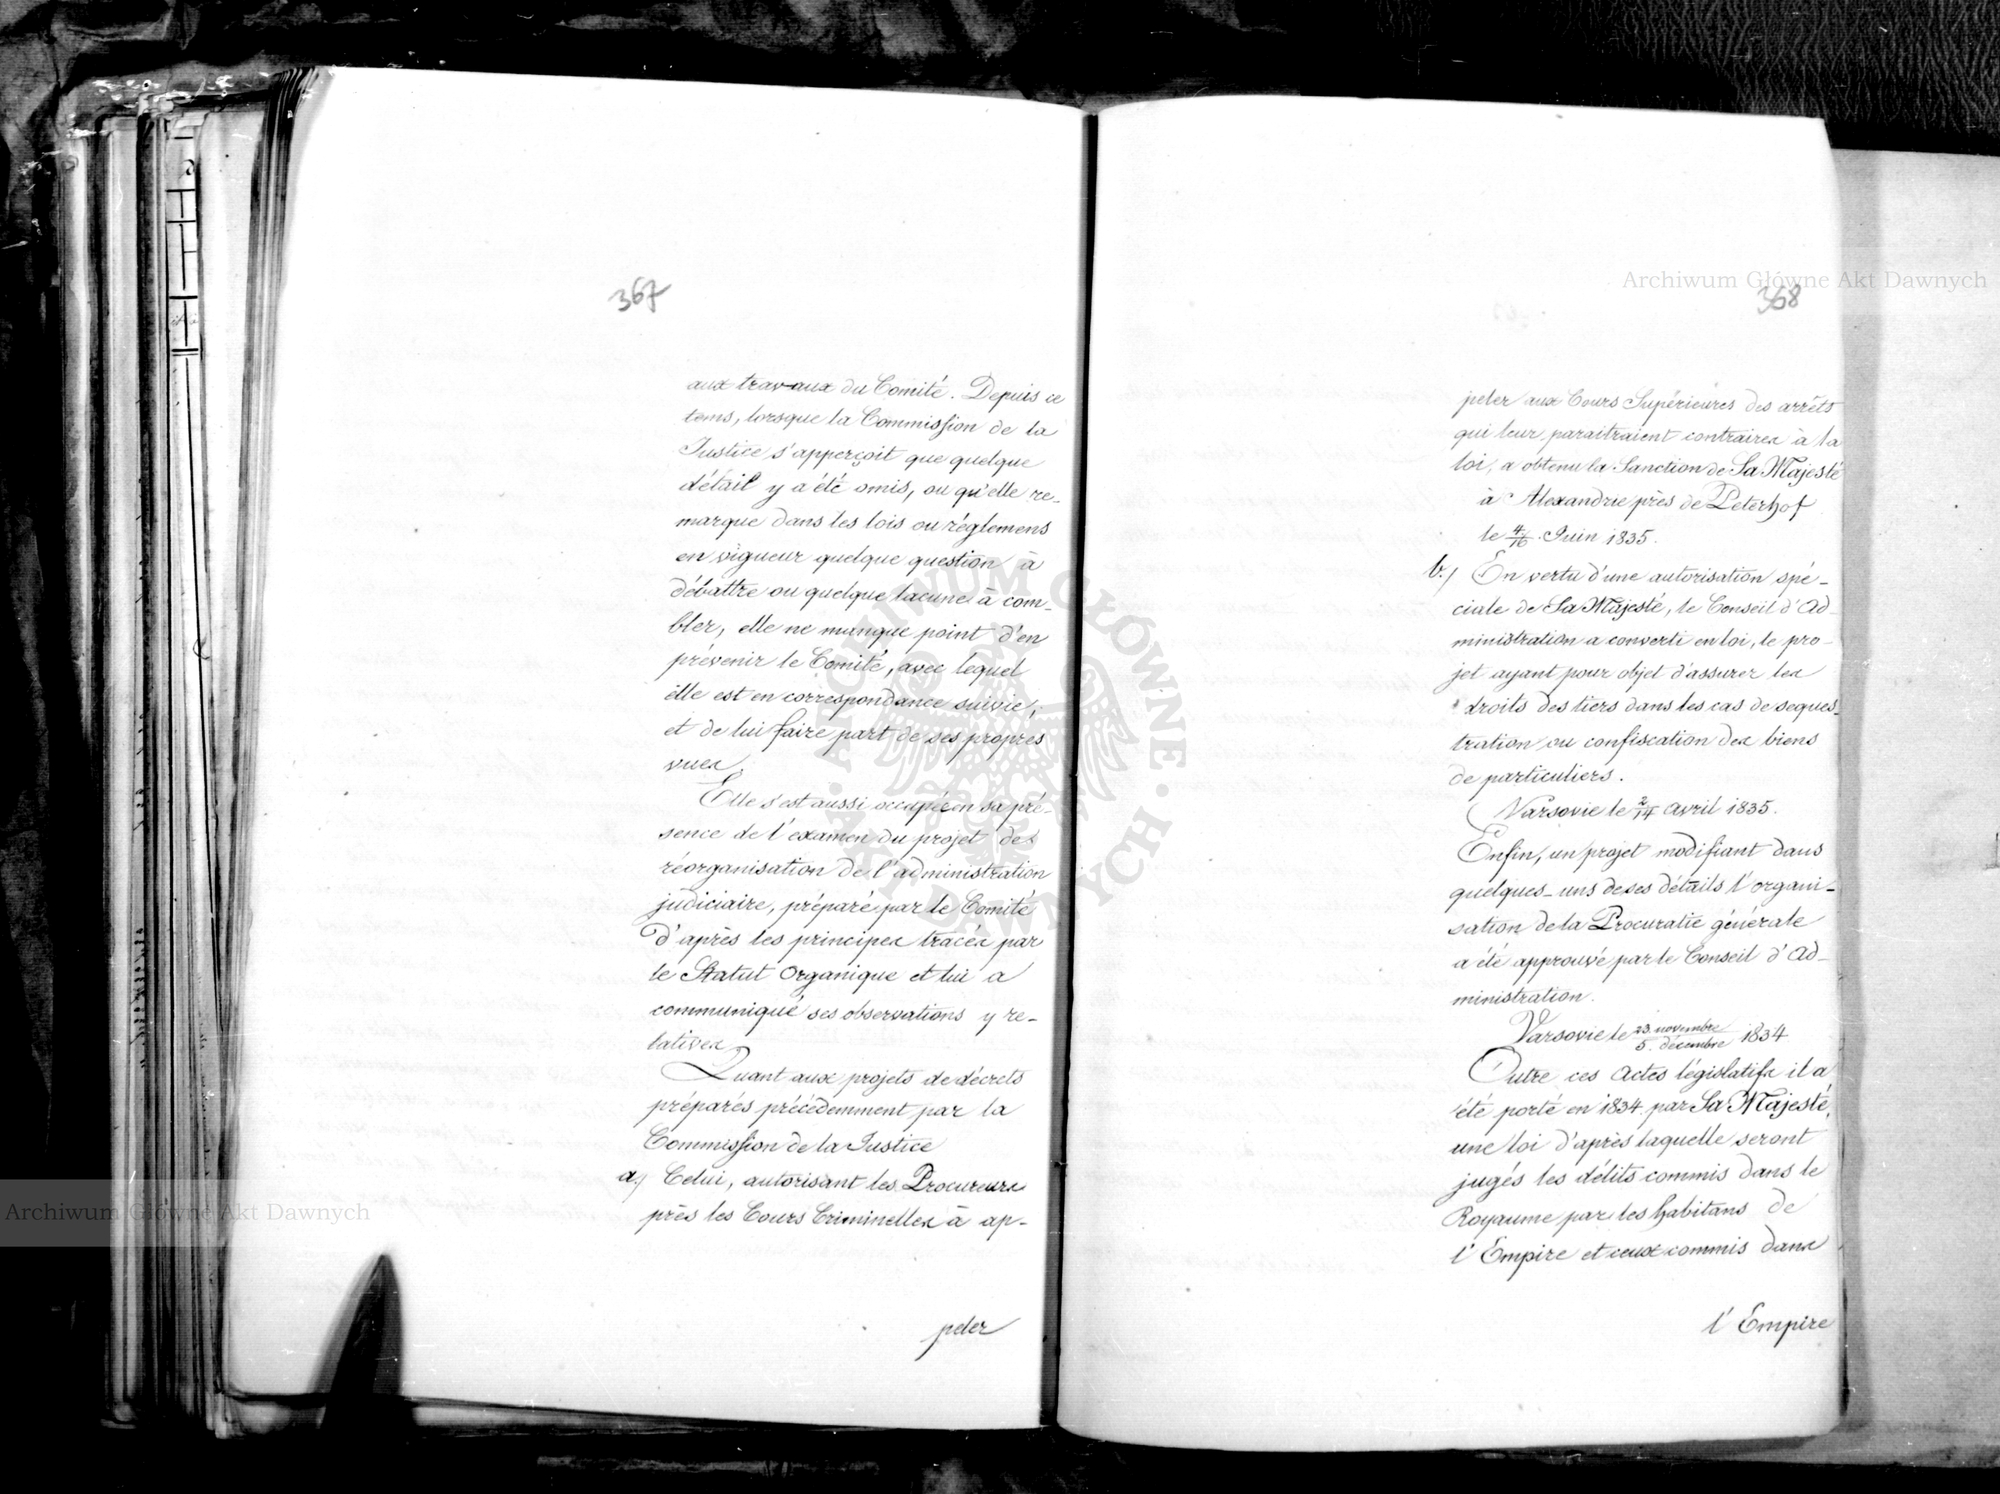 367
aux travaux du Comité. Depuis ce
tems, lorsque la Commission de la
Justice s'apperçoit que quelque
détail y a été omis, ou qu'elle re-
marque dans les lois ou réglemens
en vigueur quelque question à
débattre ou quelque lacune à com-
bler, elle ne manque point d'en
prévenir le Comité, avec lequel
elle est en correspondance suivie,
et de lui faire part de ses propres
vues.
Elle s'est aussi occupée en sa pré-
sence de l'examen du projet de
réorganisation de l'administration
judiciaire, préparé par le Comité
d'après les principes tracés par
le Statut Organique et lui a
communiqué ses observations y re-
latives.
Quant aux projets de décrets
préparés précédemment par la
Commission de la Justice
a) Celui, autorisant les Procureurs
près les Cours Criminelles à ap-
peler
Archiwum Główne Akt Dawnych
368
peler aux Cours Supérieures des arrêts
qui leur paraitraient contraires à la
loi, a obtenu la Sanction de Sa Majesté
à Alexandrie près de Peterhof
le 4/16 Juin 1835.
b.) En vertu d'une autorisation spé-
ciale de Sa Majesté, le Conseil d'Ad-
ministration a converti en loi, le pro-
jet ayant pour objet d'assurer les
droits des tiers dans les cas de seques-
tration ou confiscation des biens
de particuliers.
Varsovie le 2/14 Avril 1835.
Enfin, un projet modifiant dans
quelques-uns de ses détails l'organi-
sation de la Procuratie générale
a été approuvé par le Conseil d'Ad-
ministration.
Varsovie le 23 novembre/5. décembre 1834.
Outre ces Actes législatifs il a
été porté en 1834 par Sa Majesté,
une loi d'après laquelle seront
jugés les délits commis dans le
Royaume par les habitans de
l'Empire et ceux commis dans
l'Empire
Archiwum Główne Akt Dawnych
ARCHIWUM GŁÓWNE AKT DAWNYCH